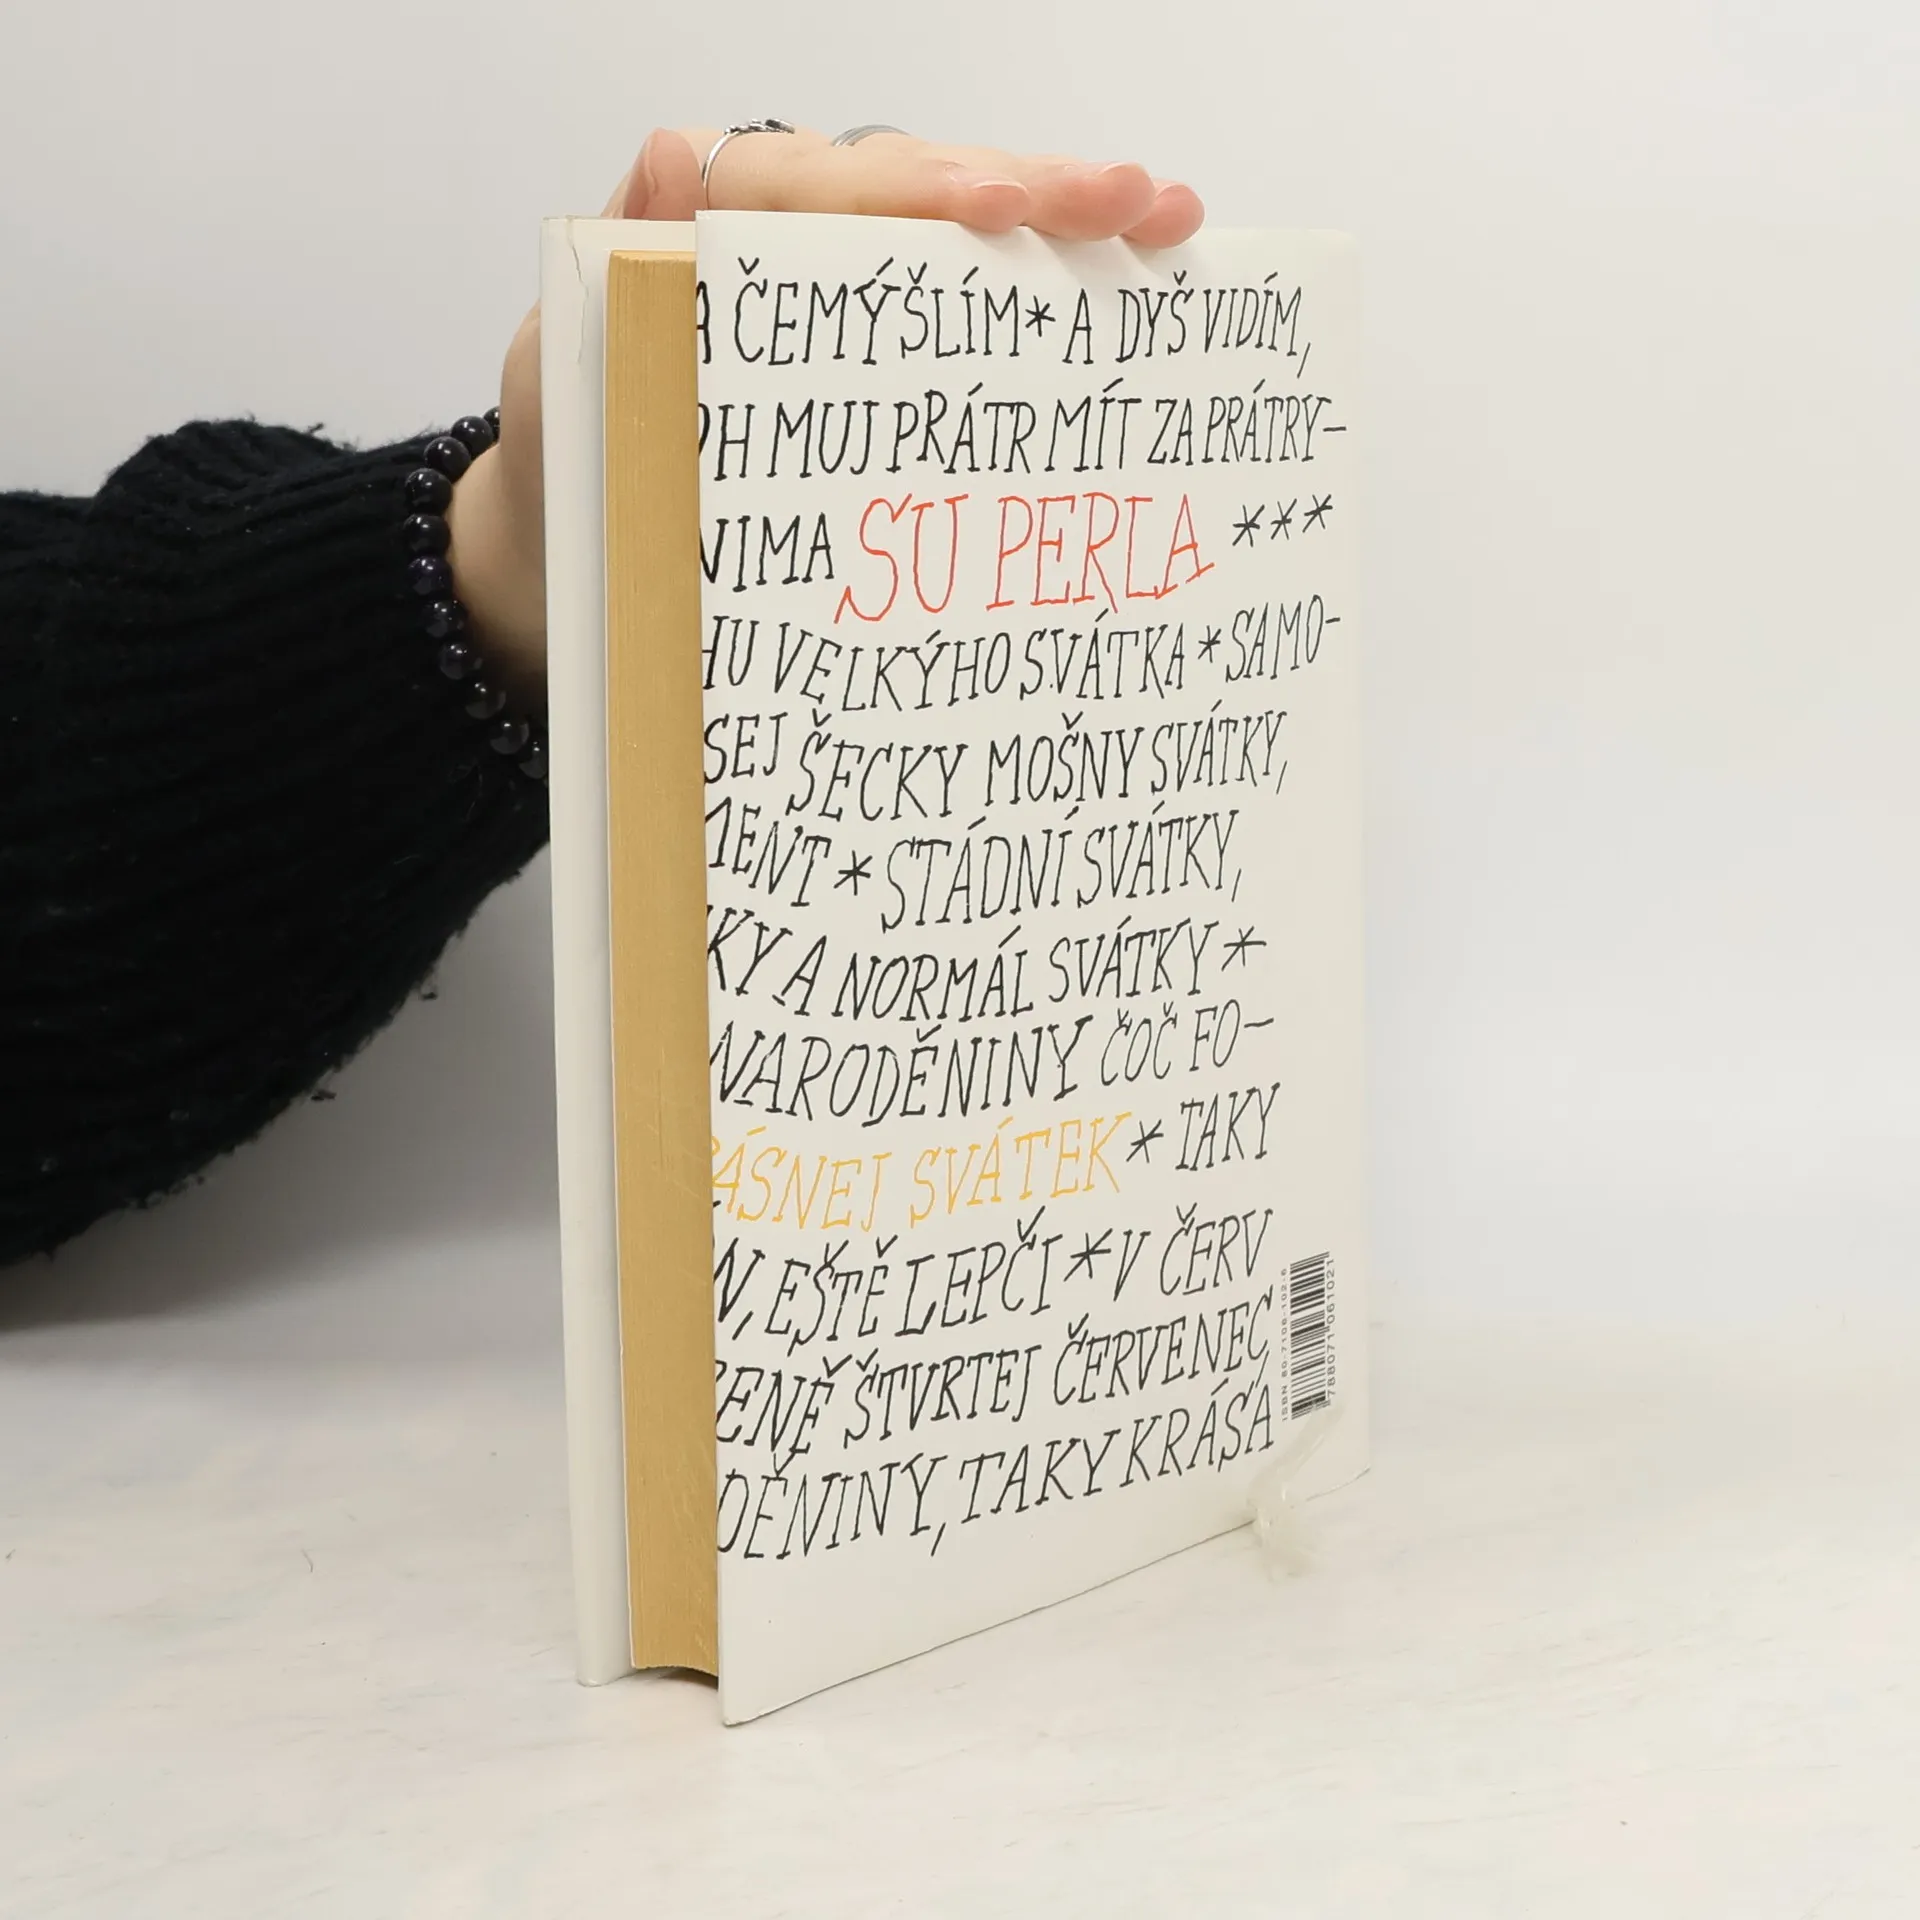 A ČEMÝŠLÍM * A DYŠ VIDÍM,
OH MUJ PRÁTR MÍT ZA PRÁTRY-
NIMA SU PERLA ***
HU VELKÝHO SVÁTKA * SAMO-
SEJ ŠECKY MOŠNY SVÁTKY,
MENT * STÁDNÍ SVÁTKY,
KY A NORMÁL SVÁTKY *
NARODĚNINY ČOČ FO-
ÁSNEJ SVÁTEK * TAKY
N, EŠTĚ LEPČI * V ČERV
ENĚ ŠTVRTEJ ČERVENEC,
DĚNINY, TAKY KRÁSA
ISBN 80-7106-102-6
788071 061021